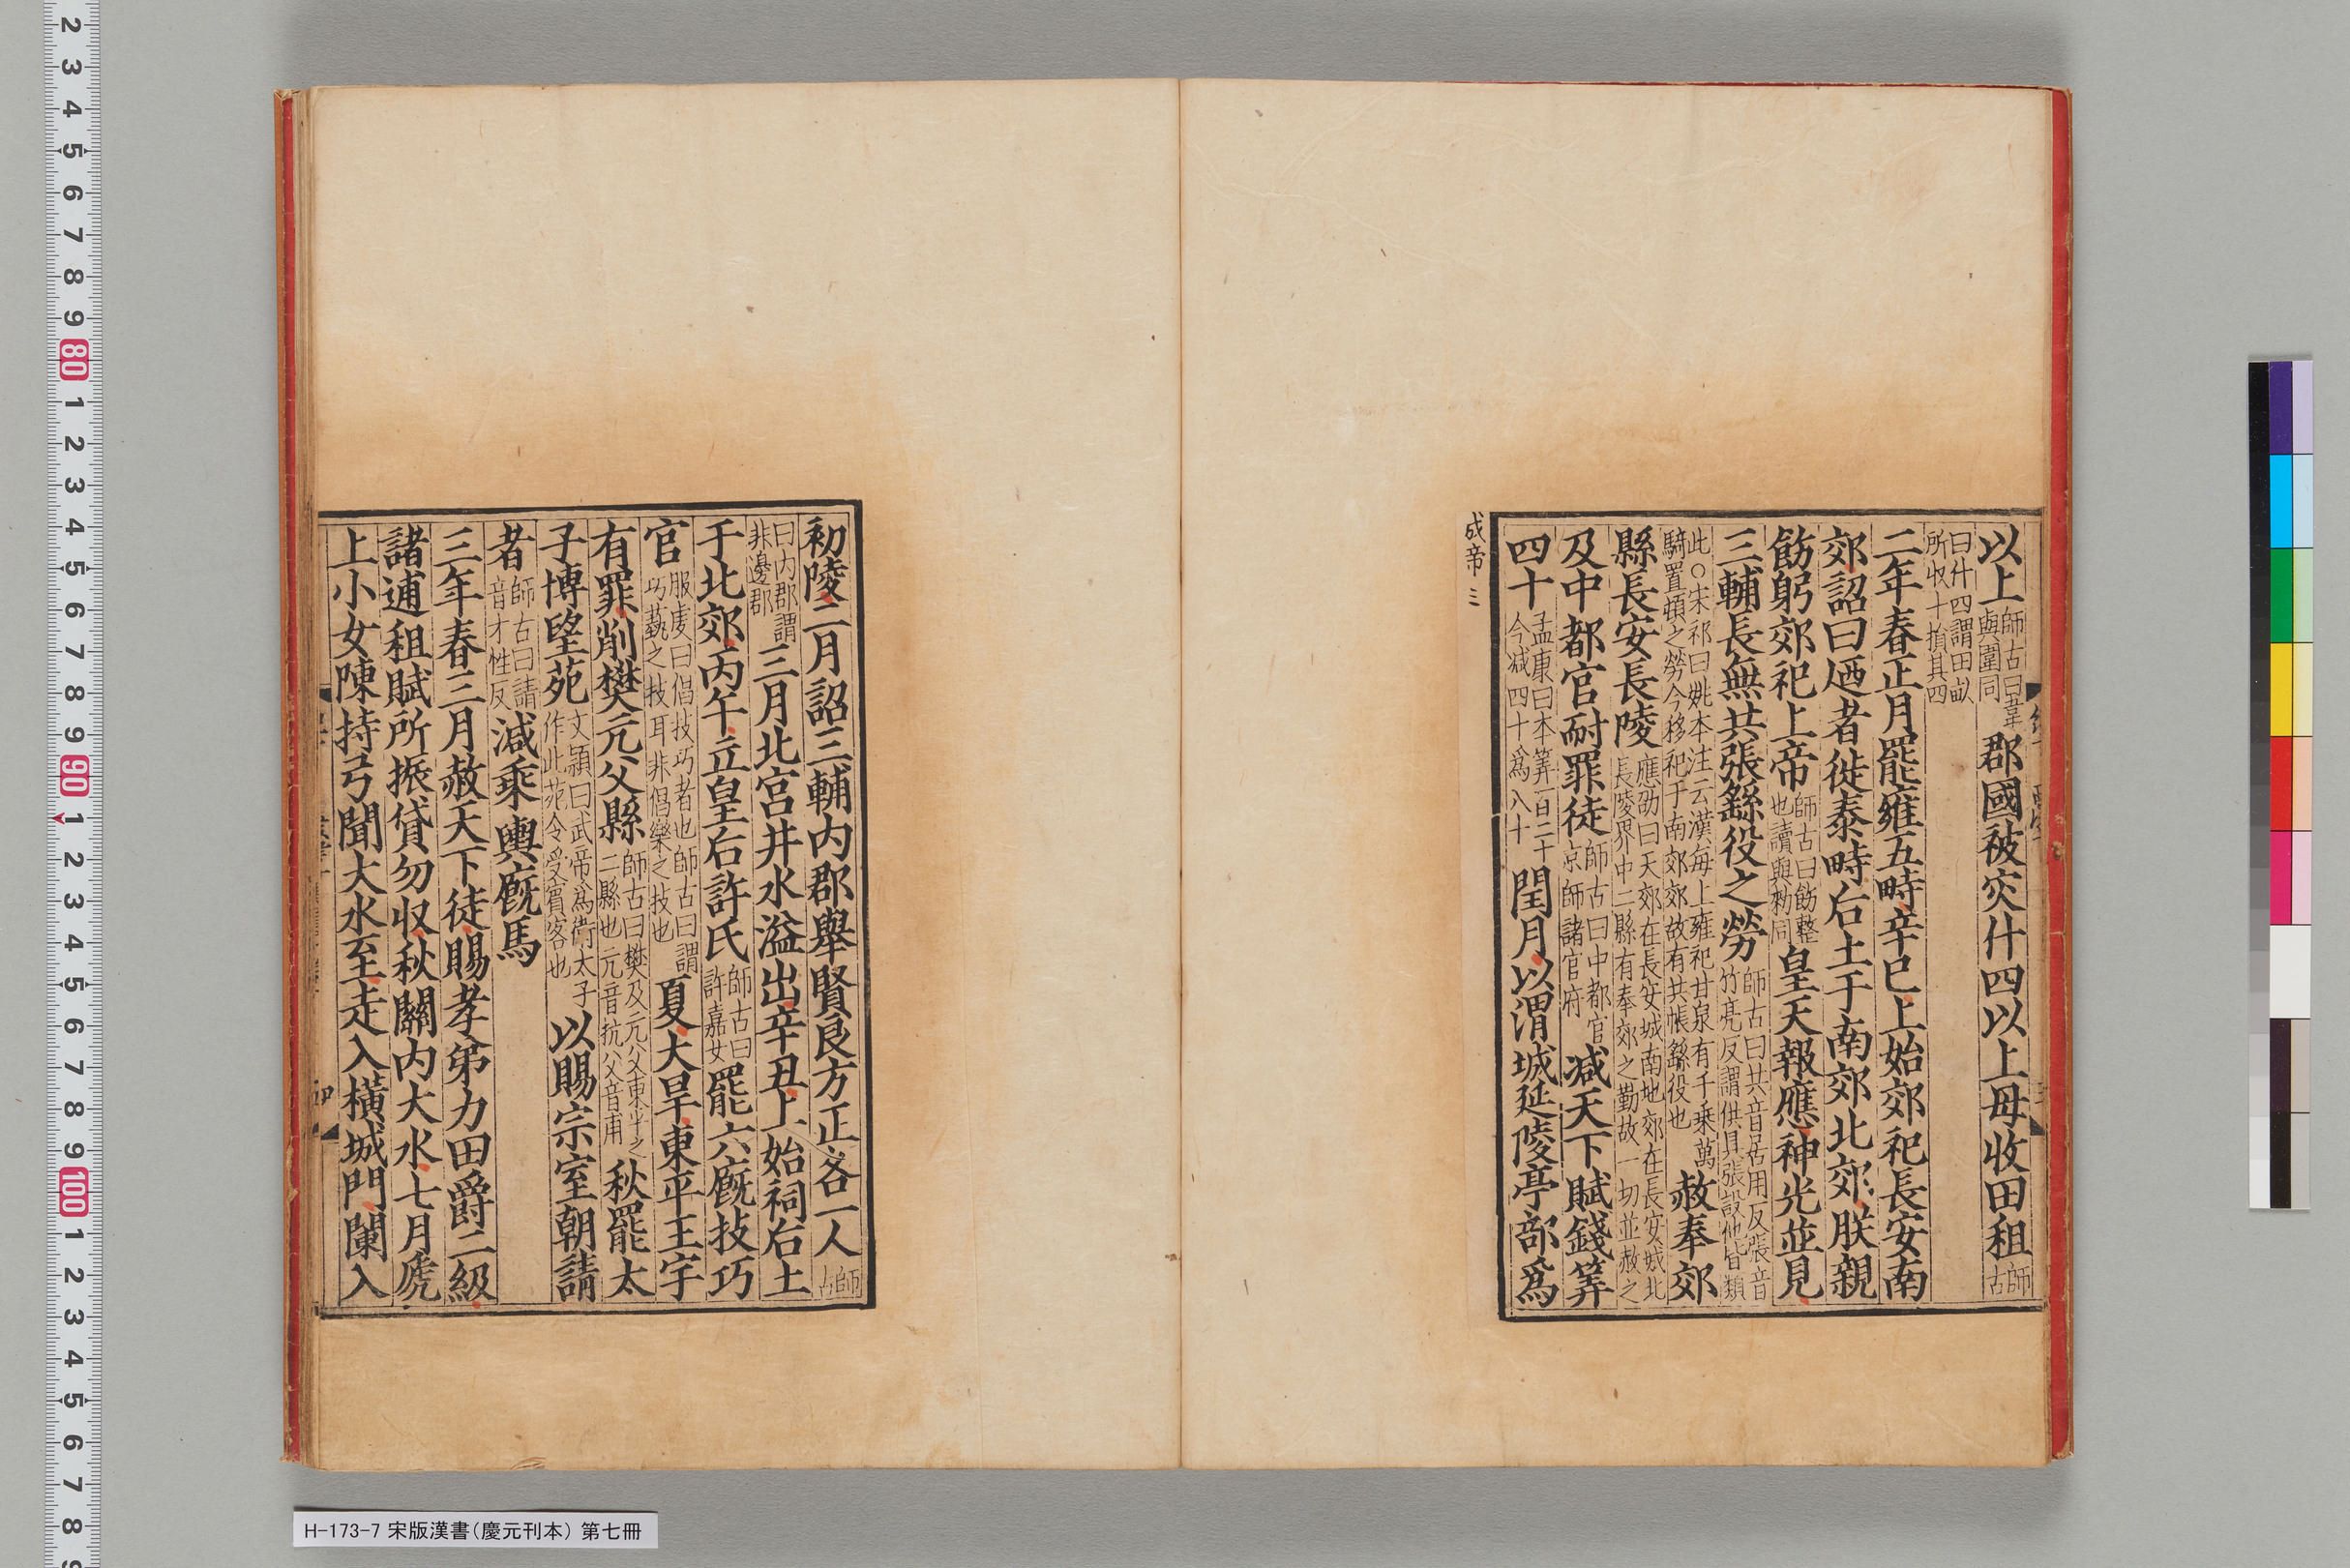 以上師古曰韋與圍同郡國被灾什四以上毋收田租師古
曰什四謂田畝所收十損其四
二年春正月罷雍五畤辛巳上始郊祀長安南
郊詔曰廼者徙泰畤后土于南郊北郊朕親
飭躬郊祀上帝師古曰飭整也讀與勑同皇天報應神光並見
三輔長無共張繇役之勞師古曰共音居用反張音竹亮反謂供具張設他皆類
此○宋祁曰姚本注云漢每上雍祀甘泉有千乗萬騎置頓之勞今移祀于南郊郊故有共帳繇役也赦奉郊
縣長安長陵應劭曰天郊在長安城南地郊在長安城北長陵界中二縣有奉郊之勤故一切並赦之
及中都官耐罪徒師古曰中都官京師諸官府減天下賦錢筭
四十孟康曰本筭百二十今减四十爲八十閏月以渭城延陵亭部爲
成帝三
初陵二月詔三輔内郡舉賢良方正各一人師古
曰内郡謂非邊郡三月北宫井水溢出辛丑上始祠后土
于北郊丙午立皇后許氏師古曰許嘉女罷六廐技巧
官服虔曰倡技巧者也師古曰謂巧藝之技耳非倡樂之技也夏大旱東平王宇
有罪削樊元父縣師古曰樊及元父東平之二縣也元音抗父音甫秋罷太
子博望苑文穎曰武帝爲衛太子作此苑令受賓客也以賜宗室朝請
者師古曰請音才性反減乘輿廐馬
三年春三月赦天下徒賜孝弟力田爵二級
諸逋租賦所振貸勿收秋關内大水七月虒
上小女陳持弓聞大水至走入横城門闌入
H-173-7 宋版漢書(慶元刊本) 第七冊
2 3 4 5 6 7 8 9 80 1 2 3 4 5 6 7 8 9 90 1 2 3 4 5 6 7 8 9 100 1 2 3 4 5 6 7 8 9